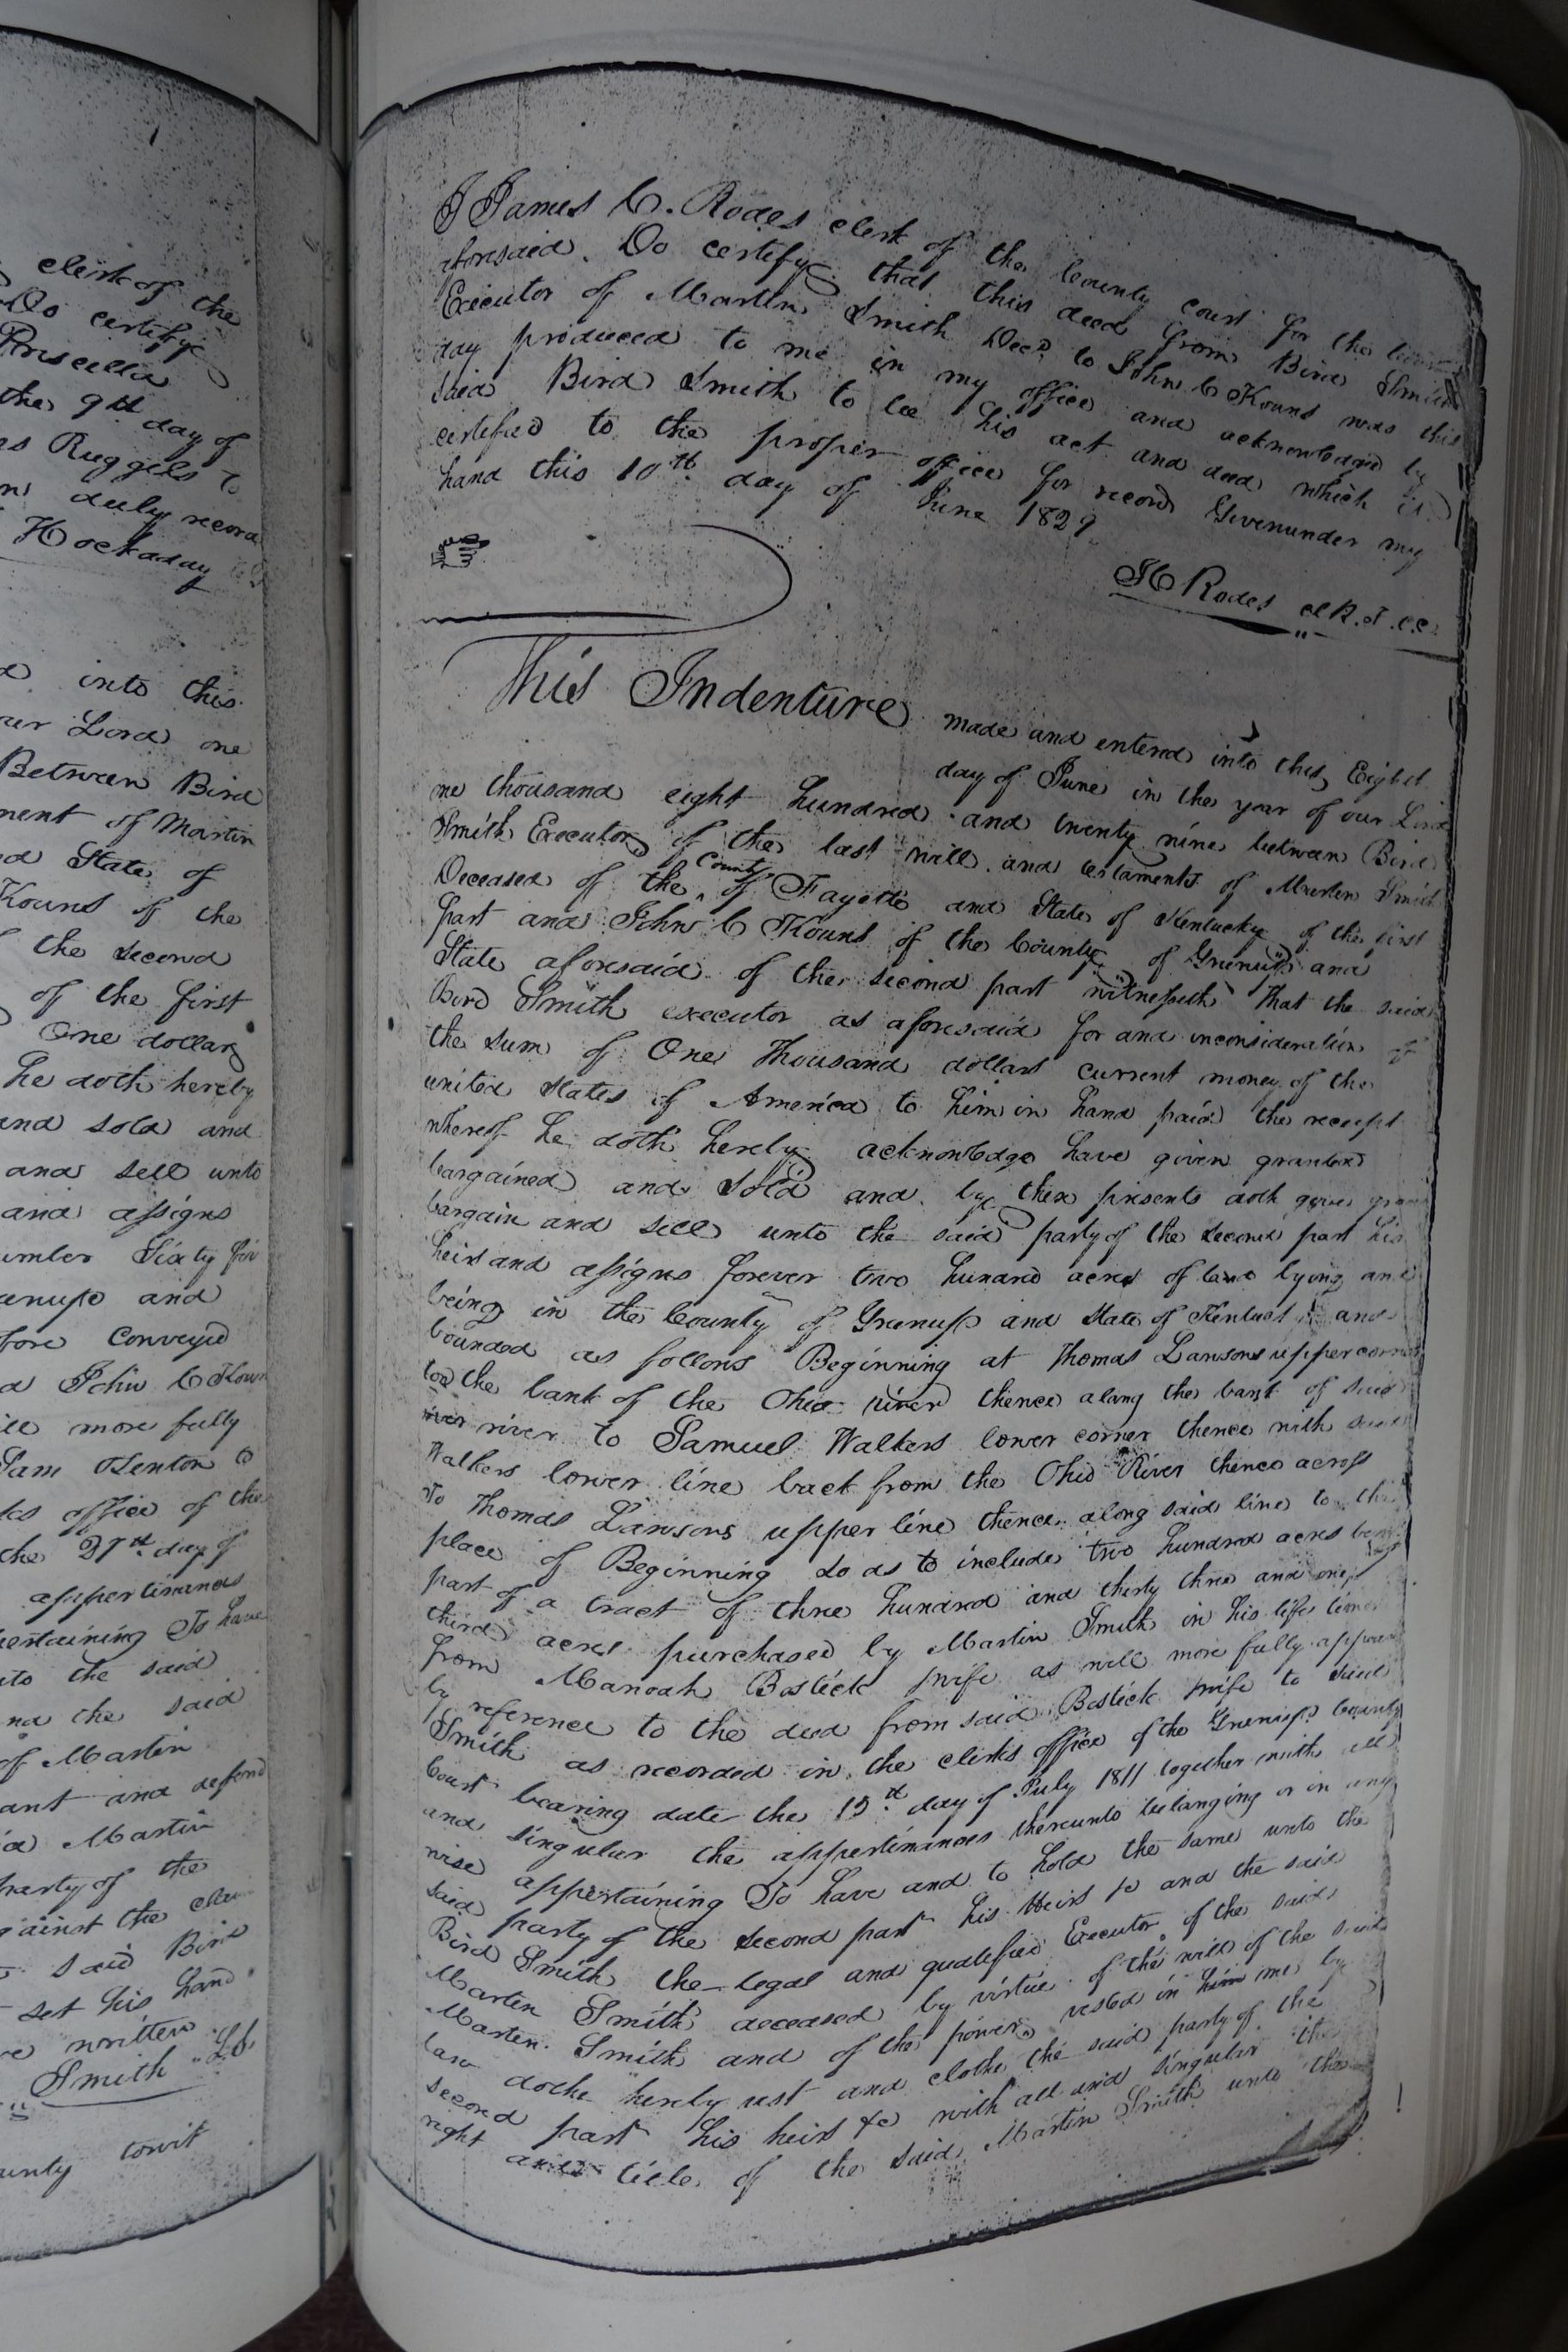 clerk of the
Do certify
Priscilla
the 9th day of
as Ruggels to
duly record
Hockaday
into this
our Lord one
Between Bird
ment of Martin
State of
Kouns of the
the second
of the first
One dollar
he doth hereby
and sold and
and sell unto
and assigns
umber Sixty fiv
enup and
fore Conveyed
John C Koun
ill more fully
Sam Seaton C
ks office of the
the 27th day of
appertinances
pertaining To have
nto the said
and the said
of Martin
ant and defend
Martin
party of the
gainst the clai
said Bird
set his hand
written
Smith
unty towit
I James C. Rodes clerk of the County court for the County
aforesaid. Do certify that this deed from Bird Smith
Executor of Marten Smith Decd. to John C Kouns was this
day produced to me in my office and acknowledged by
said Bird Smith to be his act and deed which is
certefied to the proper office for record Givenunder my
hand this 10th day of June 1829
J C Rodes clk. F.c.c.
This Indenture made and entered into this Eight
day of June in the year of our Lord
one thousand eight hundred and twenty nine between Bird
Smith Executor of the last will and testament of Marten Smith
Deceased of the County of Fayette and State of Kentucky of the first
part and John C Kouns of the County of Greenup and
State aforesaid of the second part witnesseth That the said
Bird Smith executor as aforesaid for and inconsideration of
the sum of One Thousand dollars current money of the
united States of America to him in hand paid the receipt
whereof he doth hereby acknowledge have given granted
bargained and Sold and by these presents doth give grant
bargain and sell unto the said party of the second part his
heirs and assigns forever two hundrd acres of land lying and
being in the County of Greenup and State of Kentucky and
bounded as follows Beginning at Thomas Lawsons upper corner
on the bank of the Ohio river thence along the bank of said
river to Samuel Walkers lower corner thence with said
Walkers lower line back from the Ohio River thence across
to Thomas Lawsons upper line thence along said line to the
place of Beginning so as to include two hundred acres being
part of a tract of three hundred and thirty three and one
third acres purchased by Martin Smith in his life time
from Manoah Bostick & wife as will more fully appear
by reference to the deed from said Bostick & wife to said
Smith as recorded in the clerks office of the Greenup County
Court bearing date the 15th day of July 1811 together with all
and singular the appertinances thereunto belonging or in any
wise appertaining To have and to hold the same unto the
said party of the second part his Heirs &c and the said
Bird Smith the legal and qualefied Executor of the said
Marten Smith deceased by virtue of the will of the said
Marten Smith and of the power vested in him me by
law dothe hereby vest and clothe the said party of the
second part his heirs &c with all and singular the
right and title of the said Martin Smith unto the